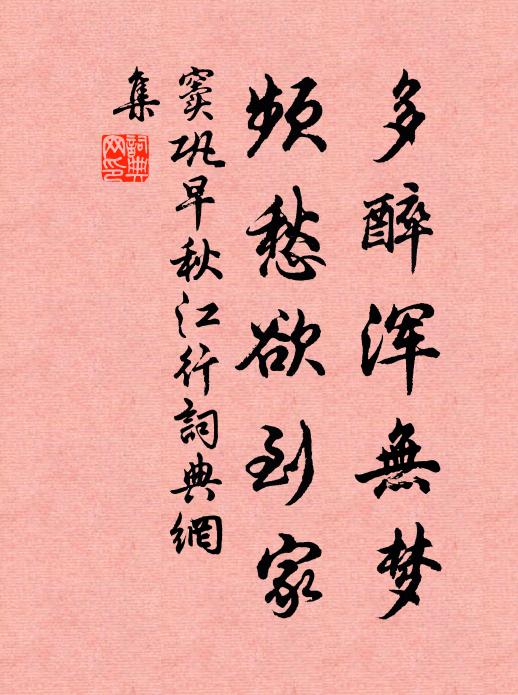 多醉浑無梦
頻愁欲到家
窦巩早秋江行詞典網
集
詞典
网印